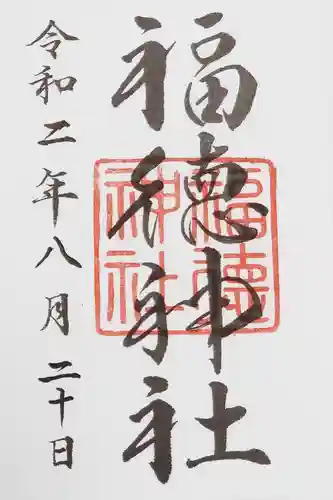 福德神社
令和二年八月二十日
福德
神社